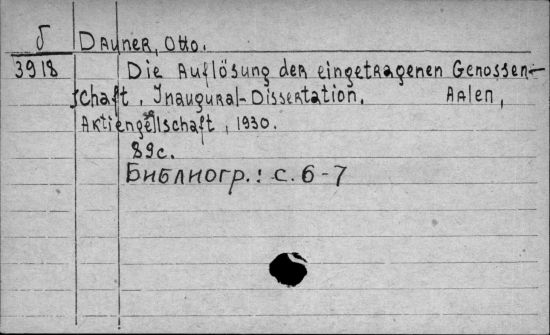 б
Dauner, Otto.
3918
Die Auflösung der eingetragenen Genossen-
schaft. Inaugural-Dissertation. Aalen,
Aktiengesellschaft, 1930.
89с.
Библиогр.: с. 6-7